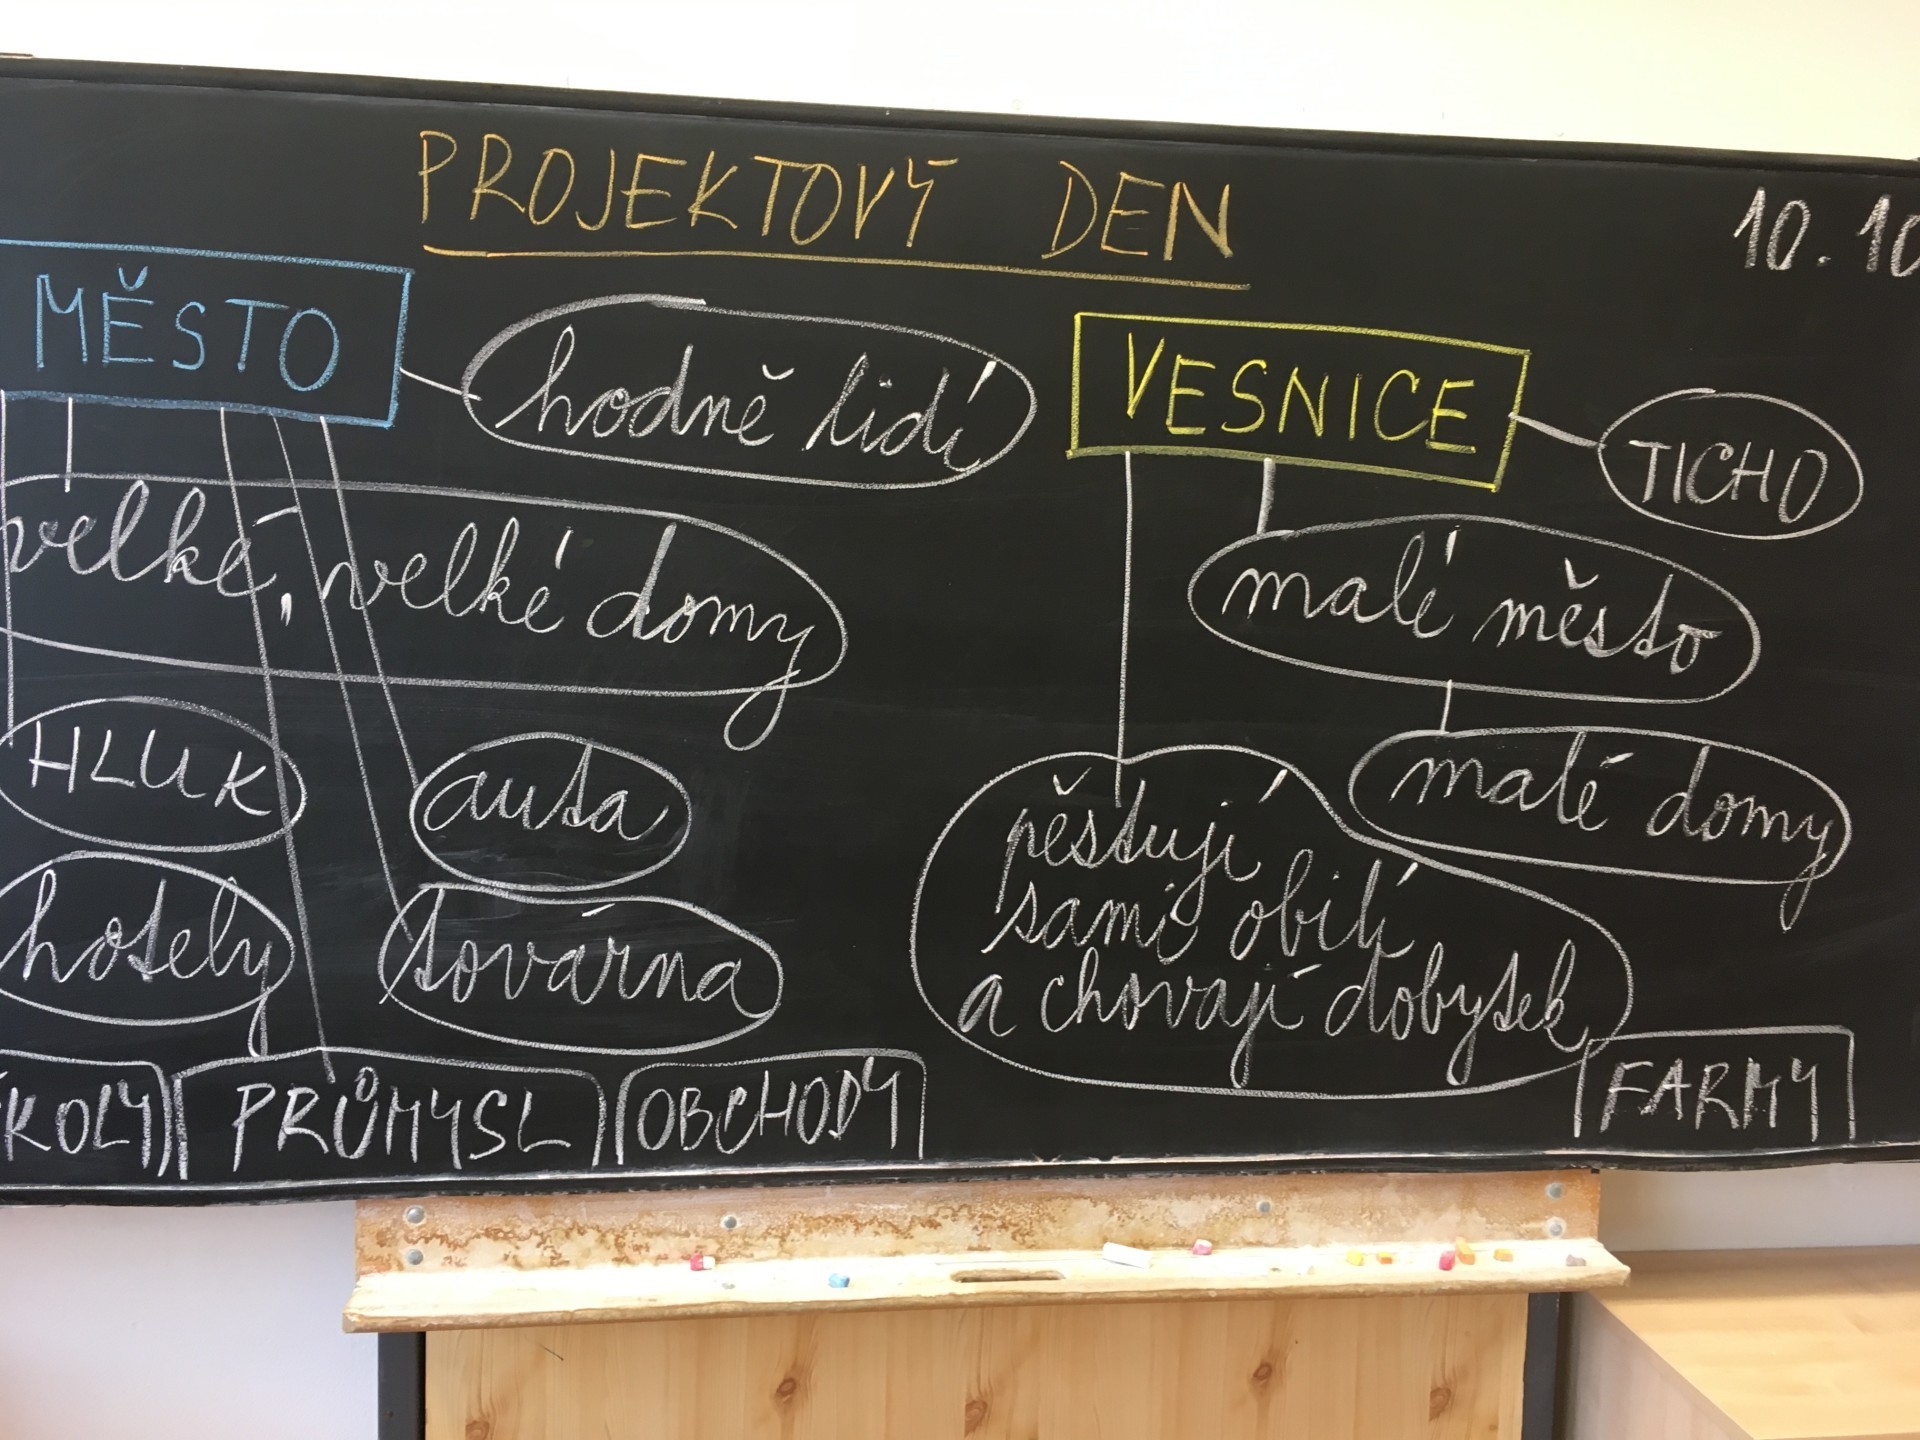 PROJEKTOVÝ DEN
10.10
MĚSTO
hodně lidí
velké, velké domy
HLUK
auta
hotely
továrna
ŠKOLY
PRŮMYSL
OBCHODY
VESNICE
TICHO
malé město
malé domy
pěstují
sami obilí
a chovají dobytek
FARMY